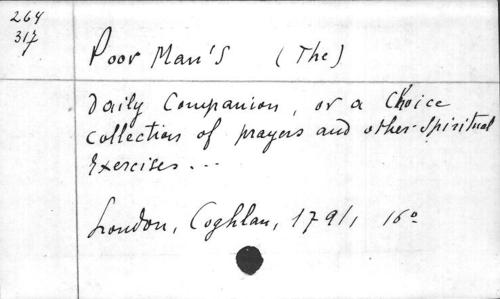 264
317
Poor Man's (The)
Daily Companion, or a Choice
collection of prayers and other Spiritual
Exercises...
London, Coghlan, 1791, 16°